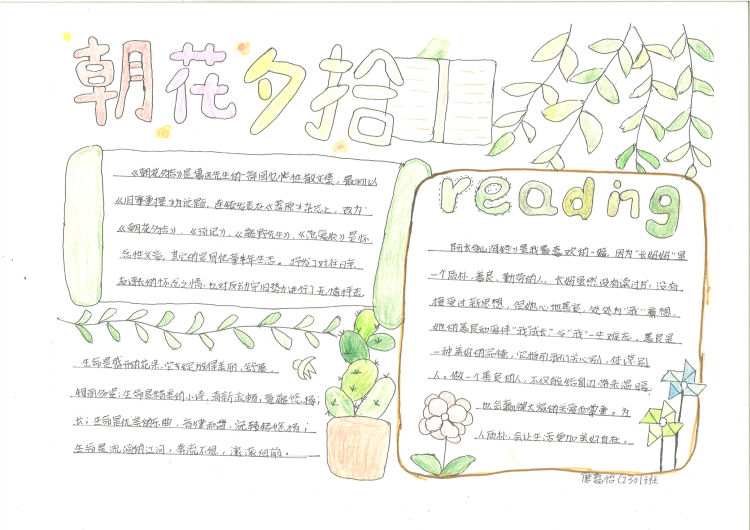 朝花夕拾
《朝花夕拾》是鲁迅先生的一部回忆性散文集，最初以
《旧事重提》为总题，在陆续发表在《莽原》杂志上，改为
《朝花夕拾》，《琐记》，《藤野先生》，《范爱农》是怀
念性文章，其它的是回忆童年生态。抒发了对往日亲
友和师长的怀念之情，也对反动守旧势力进行了无情抨击
生命是盛开的花朵，它绽放得美丽，舒展，
绚丽多姿；生命是精美的小诗，清新流畅，意蕴悠扬；
长；生命是优美的乐曲，音律和谐，宛转轻悠扬；
生命是流淌的江河，奔流不息，滚滚向前。
reading
阿长与《山海经》是我最喜欢的一篇，因为"长妈妈"是
一个质朴、善良、勤劳的人，长妈虽然没有读过书，没有
接受过新思想，但她心地善良，处处为"我"着想。
她的善良动容伴"我"成长"令"我"一生难忘。善良是
一种美好的品德，它指引我们关心别人，体谅别
人。做一个善良的人，不仅能给身边带来温暖
也会赢得大家的关爱和尊重。为
人质朴，会让生活更加美好自在。
(230)班